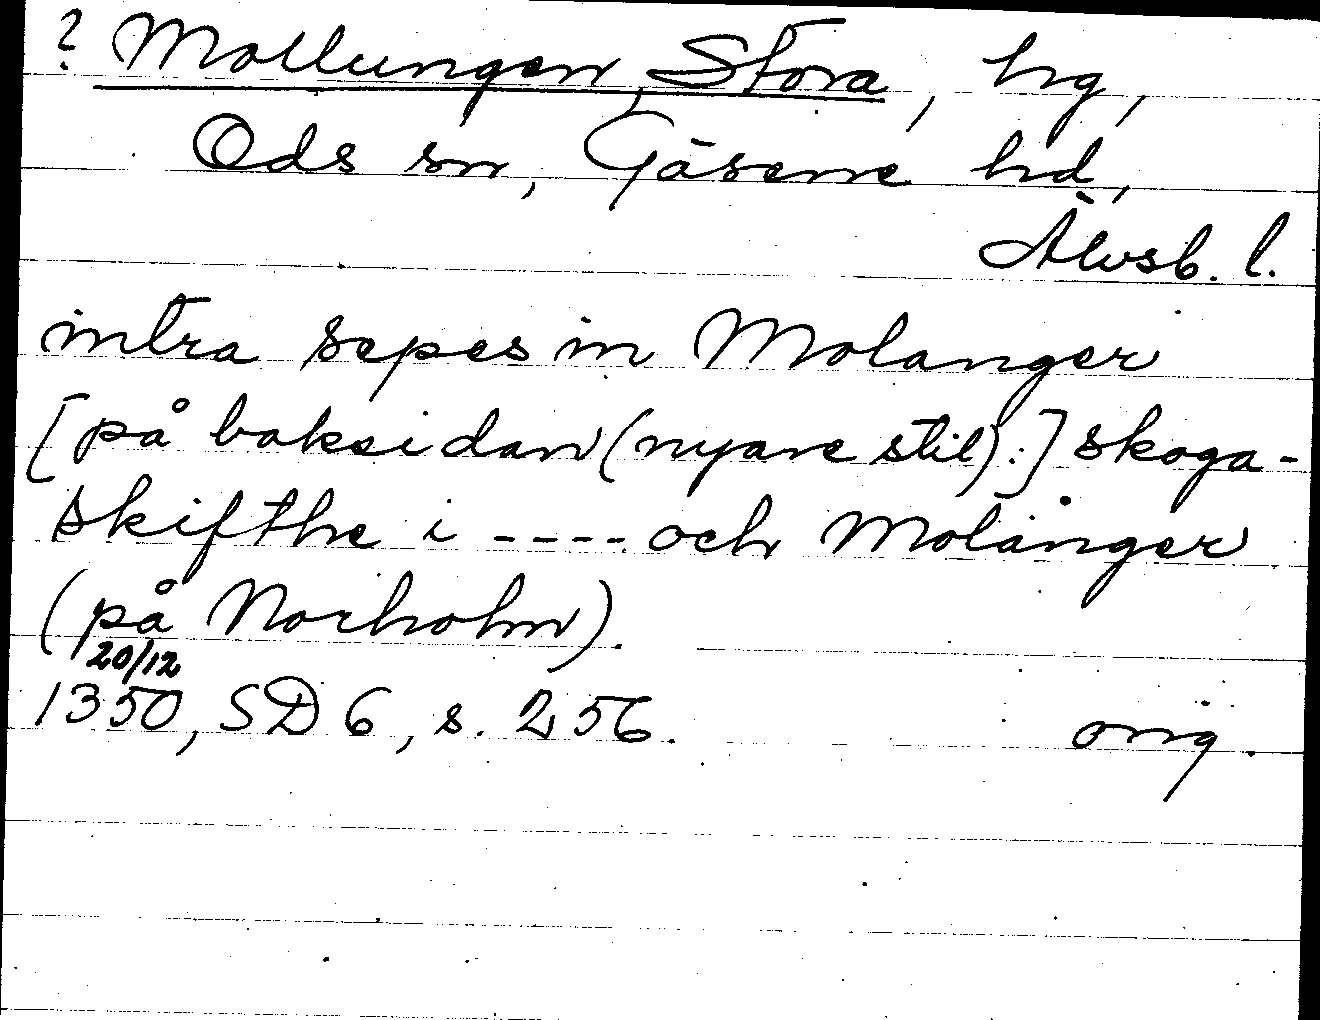 ? Mollungen, Stora, hg,
Ods sn, Gäsene hd,
Älvsb. l.
intra sepes in Molanger
[på baksidan (nyare stil):] skoga-
skifthe i ----- och Molånger
(på Norholm).
20/12
1350, SD 6, s. 256. orig.